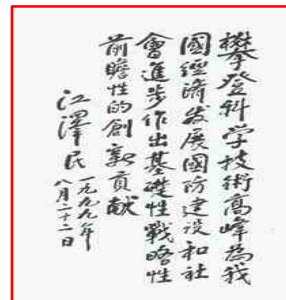 攀登科学技術高峰為我
國經濟发展國防建设和社
會進步作出基礎性戰略性
前瞻性的創新貢献
江澤民
一九九九年
八月二十二日